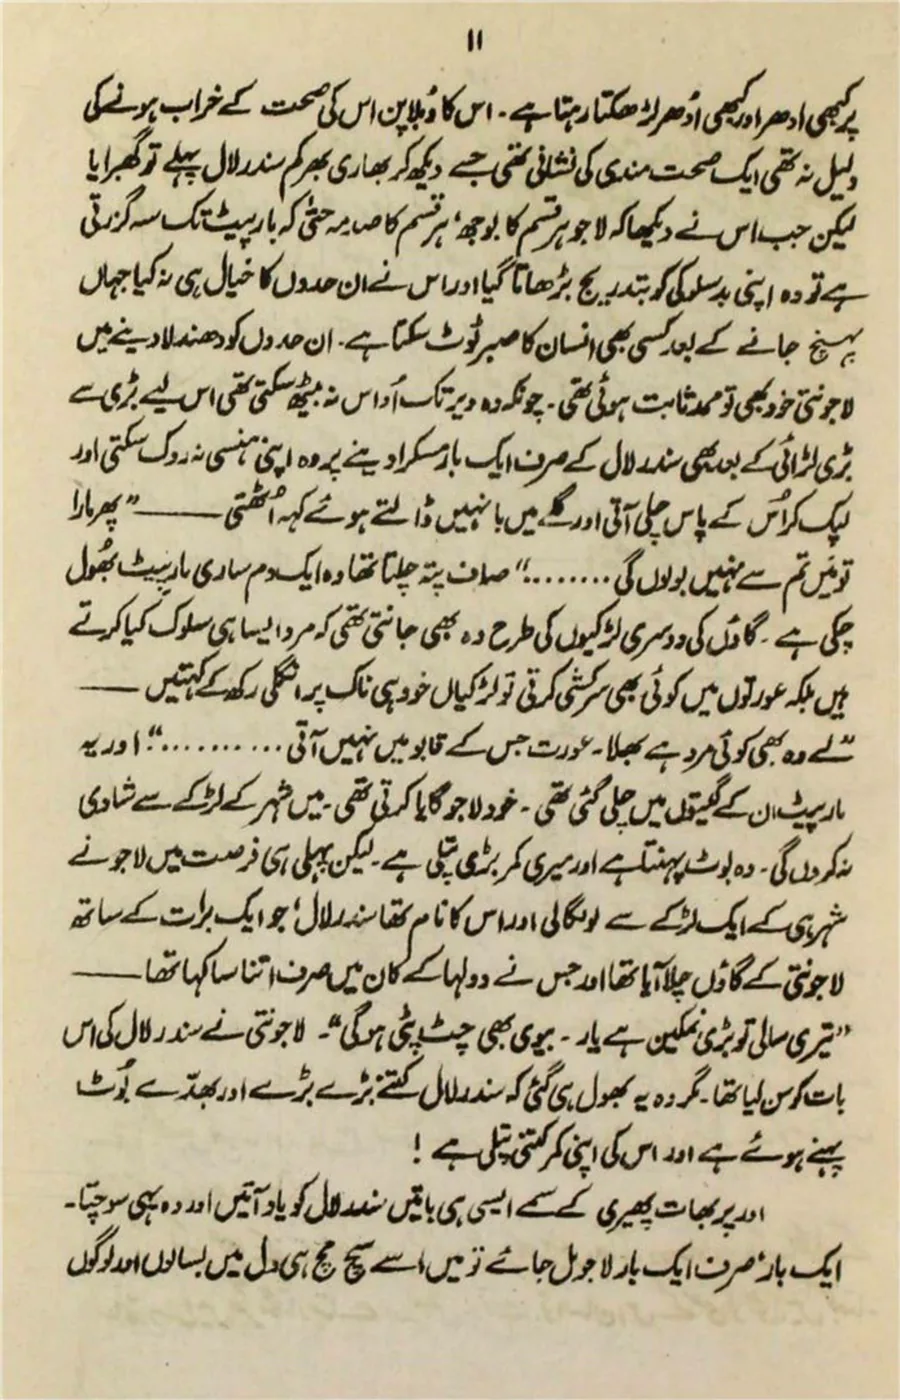 ۱۱
پر کبھی ادھر اور کبھی اُدھر لڑھکتا رہتا ہے۔ اس کا دُبلا پن اس کی صحت کے خراب ہونے کی
دلیل نہ تھی ایک صحت مندی کی نشانی تھی جسے دیکھ کر بھاری بھرکم سندر لال پہلے تو گھبرایا
لیکن جب اس نے دیکھا کہ لاجو ہر قسم کا بوجھ، ہر قسم کا صدمہ حتیٰ کہ مار پیٹ تک سہ گزرتی
ہے تو وہ اپنی بدسلوکی کو بتدریج بڑھاتا گیا اور اس نے ان حدوں کا خیال ہی نہ کیا جہاں
پہنچ جانے کے بعد کسی بھی انسان کا صبر ٹوٹ سکتا ہے۔ ان حدوں کو دھندلا دینے میں
لاجونتی خود بھی تو ممد ثابت ہوئی تھی۔ چونکہ وہ دیر تک اُداس نہ بیٹھ سکتی تھی اس لیے بڑی سے
بڑی لڑائی کے بعد بھی سندر لال کے صرف ایک بار مسکرا دینے پر وہ اپنی ہنسی نہ روک سکتی اور
لپک کر اُس کے پاس چلی آتی اور گلے میں بانہیں ڈالتے ہوئے کہہ اُٹھتی —— ”پھر مارا
تو میں تم سے نہیں بولوں گی ........“ صاف پتہ چلتا تھا وہ ایک دم ساری مار پیٹ بھُول
چکی ہے۔ گاؤں کی دوسری لڑکیوں کی طرح وہ بھی جانتی تھی کہ مرد ایسا ہی سلوک کیا کرتے
ہیں بلکہ عورتوں میں کوئی بھی سرکشی کرتی تو لڑکیاں خود ہی ناک پر انگلی رکھ کے کہتیں ——
”لے وہ بھی کوئی مرد ہے بھلا۔ عورت جس کے قابو میں نہیں آتی ..........“ اور یہ
مار پیٹ ان کے گیتوں میں چلی گئی تھی۔ خود لاجو گایا کرتی تھی۔ میں شہر کے لڑکے سے شادی
نہ کروں گی۔ وہ بوٹ پہنتا ہے اور میری کمر بڑی پتلی ہے۔ لیکن پہلی ہی فرصت میں لاجو نے
شہر ہی کے ایک لڑکے سے لو لگالی اور اس کا نام تھا سندر لال، جو ایک برات کے ساتھ
لاجونتی کے گاؤں چلا آیا تھا اور جس نے دولہا کے کان میں صرف اتنا سا کہا تھا ——
”تیری سالی تو بڑی نمکین ہے یار۔ بیوی بھی چٹ پٹی ہوگی“۔ لاجونتی نے سندر لال کی اس
بات کو سن لیا تھا۔ مگر وہ یہ بھول ہی گئی کہ سندر لال کتنے بڑے بڑے اور بھدّے بُوٹ
پہنے ہوئے ہے اور اس کی اپنی کمر کتنی پتلی ہے!
اور پربھات پھیری کے سمے ایسی ہی باتیں سندر لال کو یاد آتیں اور وہ یہی سوچتا۔
ایک بار، صرف ایک بار لاجو مل جائے تو میں اسے سچ مچ ہی دل میں بسالوں اور لوگوں